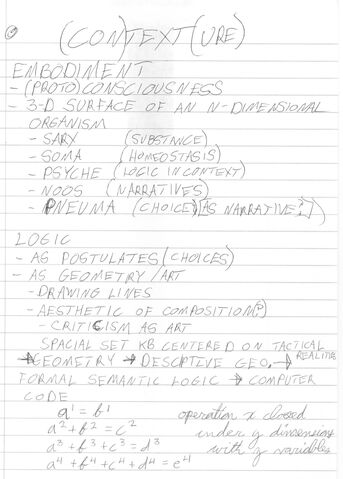 (CON)TEXT(URE)
EMBODIMENT
- (PROTO)CONSCIOUSNESS
- 3-D SURFACE OF AN N-DIMENSIONAL
ORGANISM
- SARX (SUBSTANCE)
- SOMA (HOMEOSTASIS)
- PSYCHE (LOGIC IN CONTEXT)
- NOOS (NARRATIVES)
- PNEUMA (CHOICE)(AS NARRATIVE?)
LOGIC
- AS POSTULATES (CHOICES)
- AS GEOMETRY/ART
- DRAWING LINES
- AESTHETIC OF COMPOSITION(S)
- CRITICISM AS ART
SPACIAL SET KB CENTERED ON TACTICAL
→ GEOMETRY → DESCPTIVE GEO. → REALITIES
FORMAL SEMANTIC LOGIC → COMPUTER
CODE
a¹ = b¹
a² + b² = c²
a³ + b³ + c³ = d³
a⁴ + b⁴ + c⁴ + d⁴ = e⁴
operation x closed
under y dimensions
with y variables